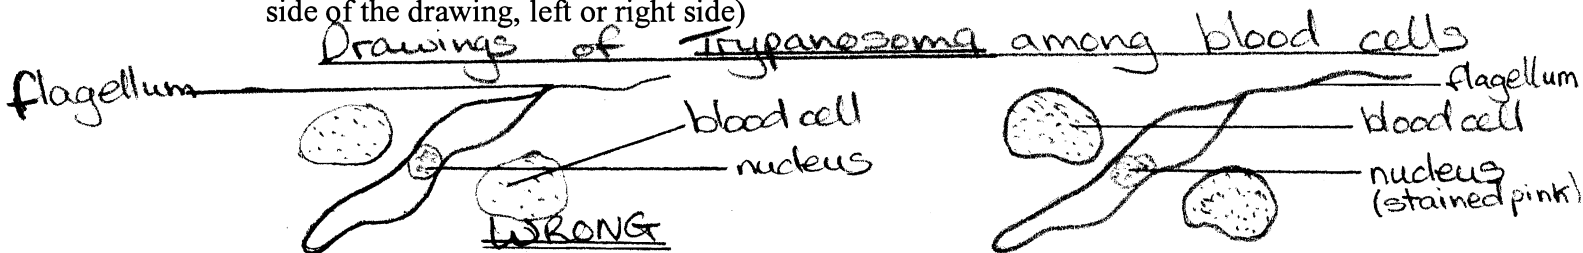 side of the drawing, left or right side)
Drawings of Trypanosoma among blood cells
flagellum
blood cell
nucleus
WRONG
flagellum
blood cell
nucleus
(stained pink)